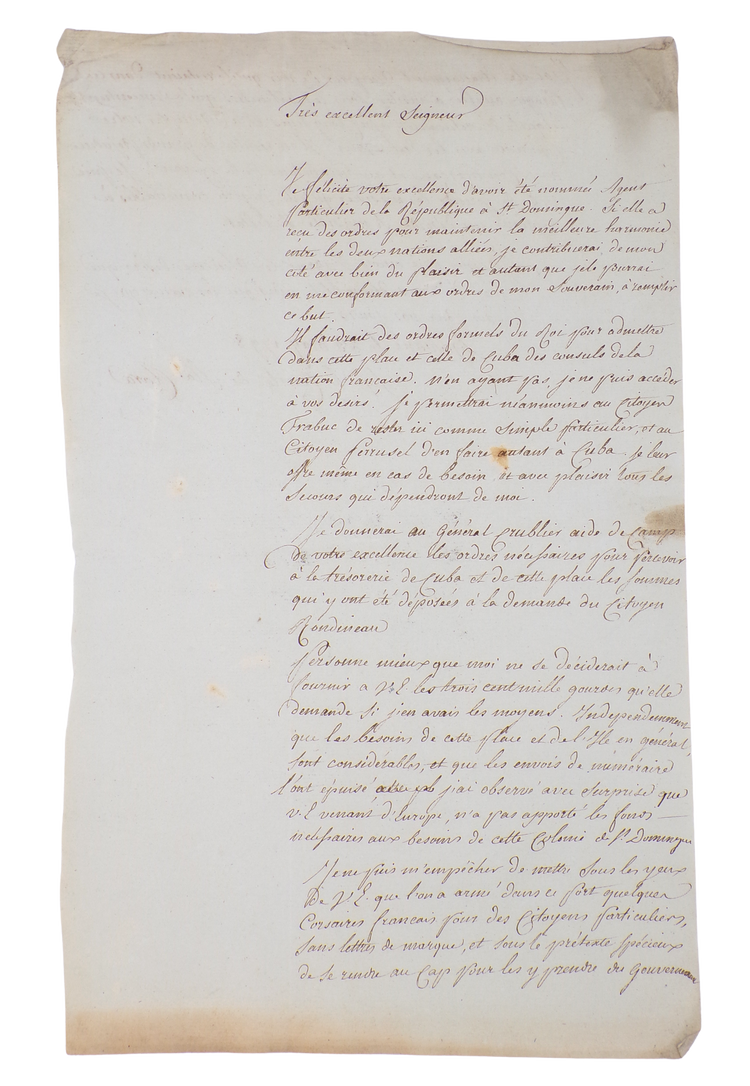 Très excellent Seigneur
Je félicite votre excellence d'avoir été nommée Agent
Particulier de la République à St Domingue. Si elle a
reçu des ordres pour maintenir la meilleure harmonie
entre les deux nations alliées, je contribuerai de mon
coté avec bien du plaisir et autant que je le pourrai
en me conformant aux ordres de mon Souverain, à remplir
ce but.
Il faudrait des ordres formels du Roi pour admettre
dans cette place et celle de Cuba des consuls de la
nation française. n'en ayant pas, je ne puis accéder
à vos desirs. Je permettrai néanmoins au Citoyen
Trabuc de rester ici comme simple particulier, et au
Citoyen Ferrusel d'en faire autant à Cuba. je leur
offre même en cas de besoin, et avec plaisir tous les
Secours qui dépendront de moi.
Je donnerai au Général Crublier aide de Camp
de votre excellence les ordres nécessaires pour percevoir
à la trésorerie de Cuba et de cette place les sommes
qui y ont été déposées à la demande du Citoyen
Rondineau
Personne mieux que moi ne se déciderait à
fournir a V.E. les trois cent mille gourdes qu'elle
demande si j'en avais les moyens. Independemment
que les besoins de cette place et de l'Ile en général
sont considérables, et que les envois de numéraire
l'ont épuisé j'ai observé avec surprise que
V.E venant d'Europe, n'a pas apporté les fonds
necessaires aux besoins de cette Colonie de St Domingue
Je ne puis m'empêcher de mettre sous les yeux
De V.E. que l'on a armé dans ce port quelques
Corsaires français pour des Citoyens particuliers,
sans lettres de marque, et sous le prétexte spécieux
de se rendre au Cap pour les y prendre du Gouverneur